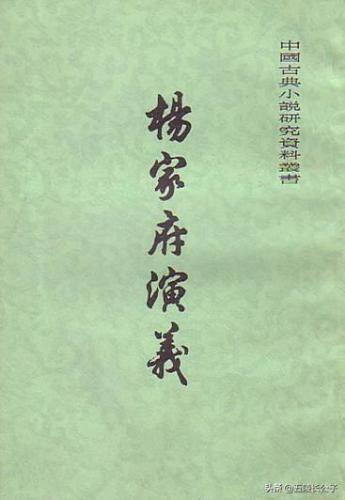 中國古典小說研究資料叢書
楊家府演義
头条@五陵长公子